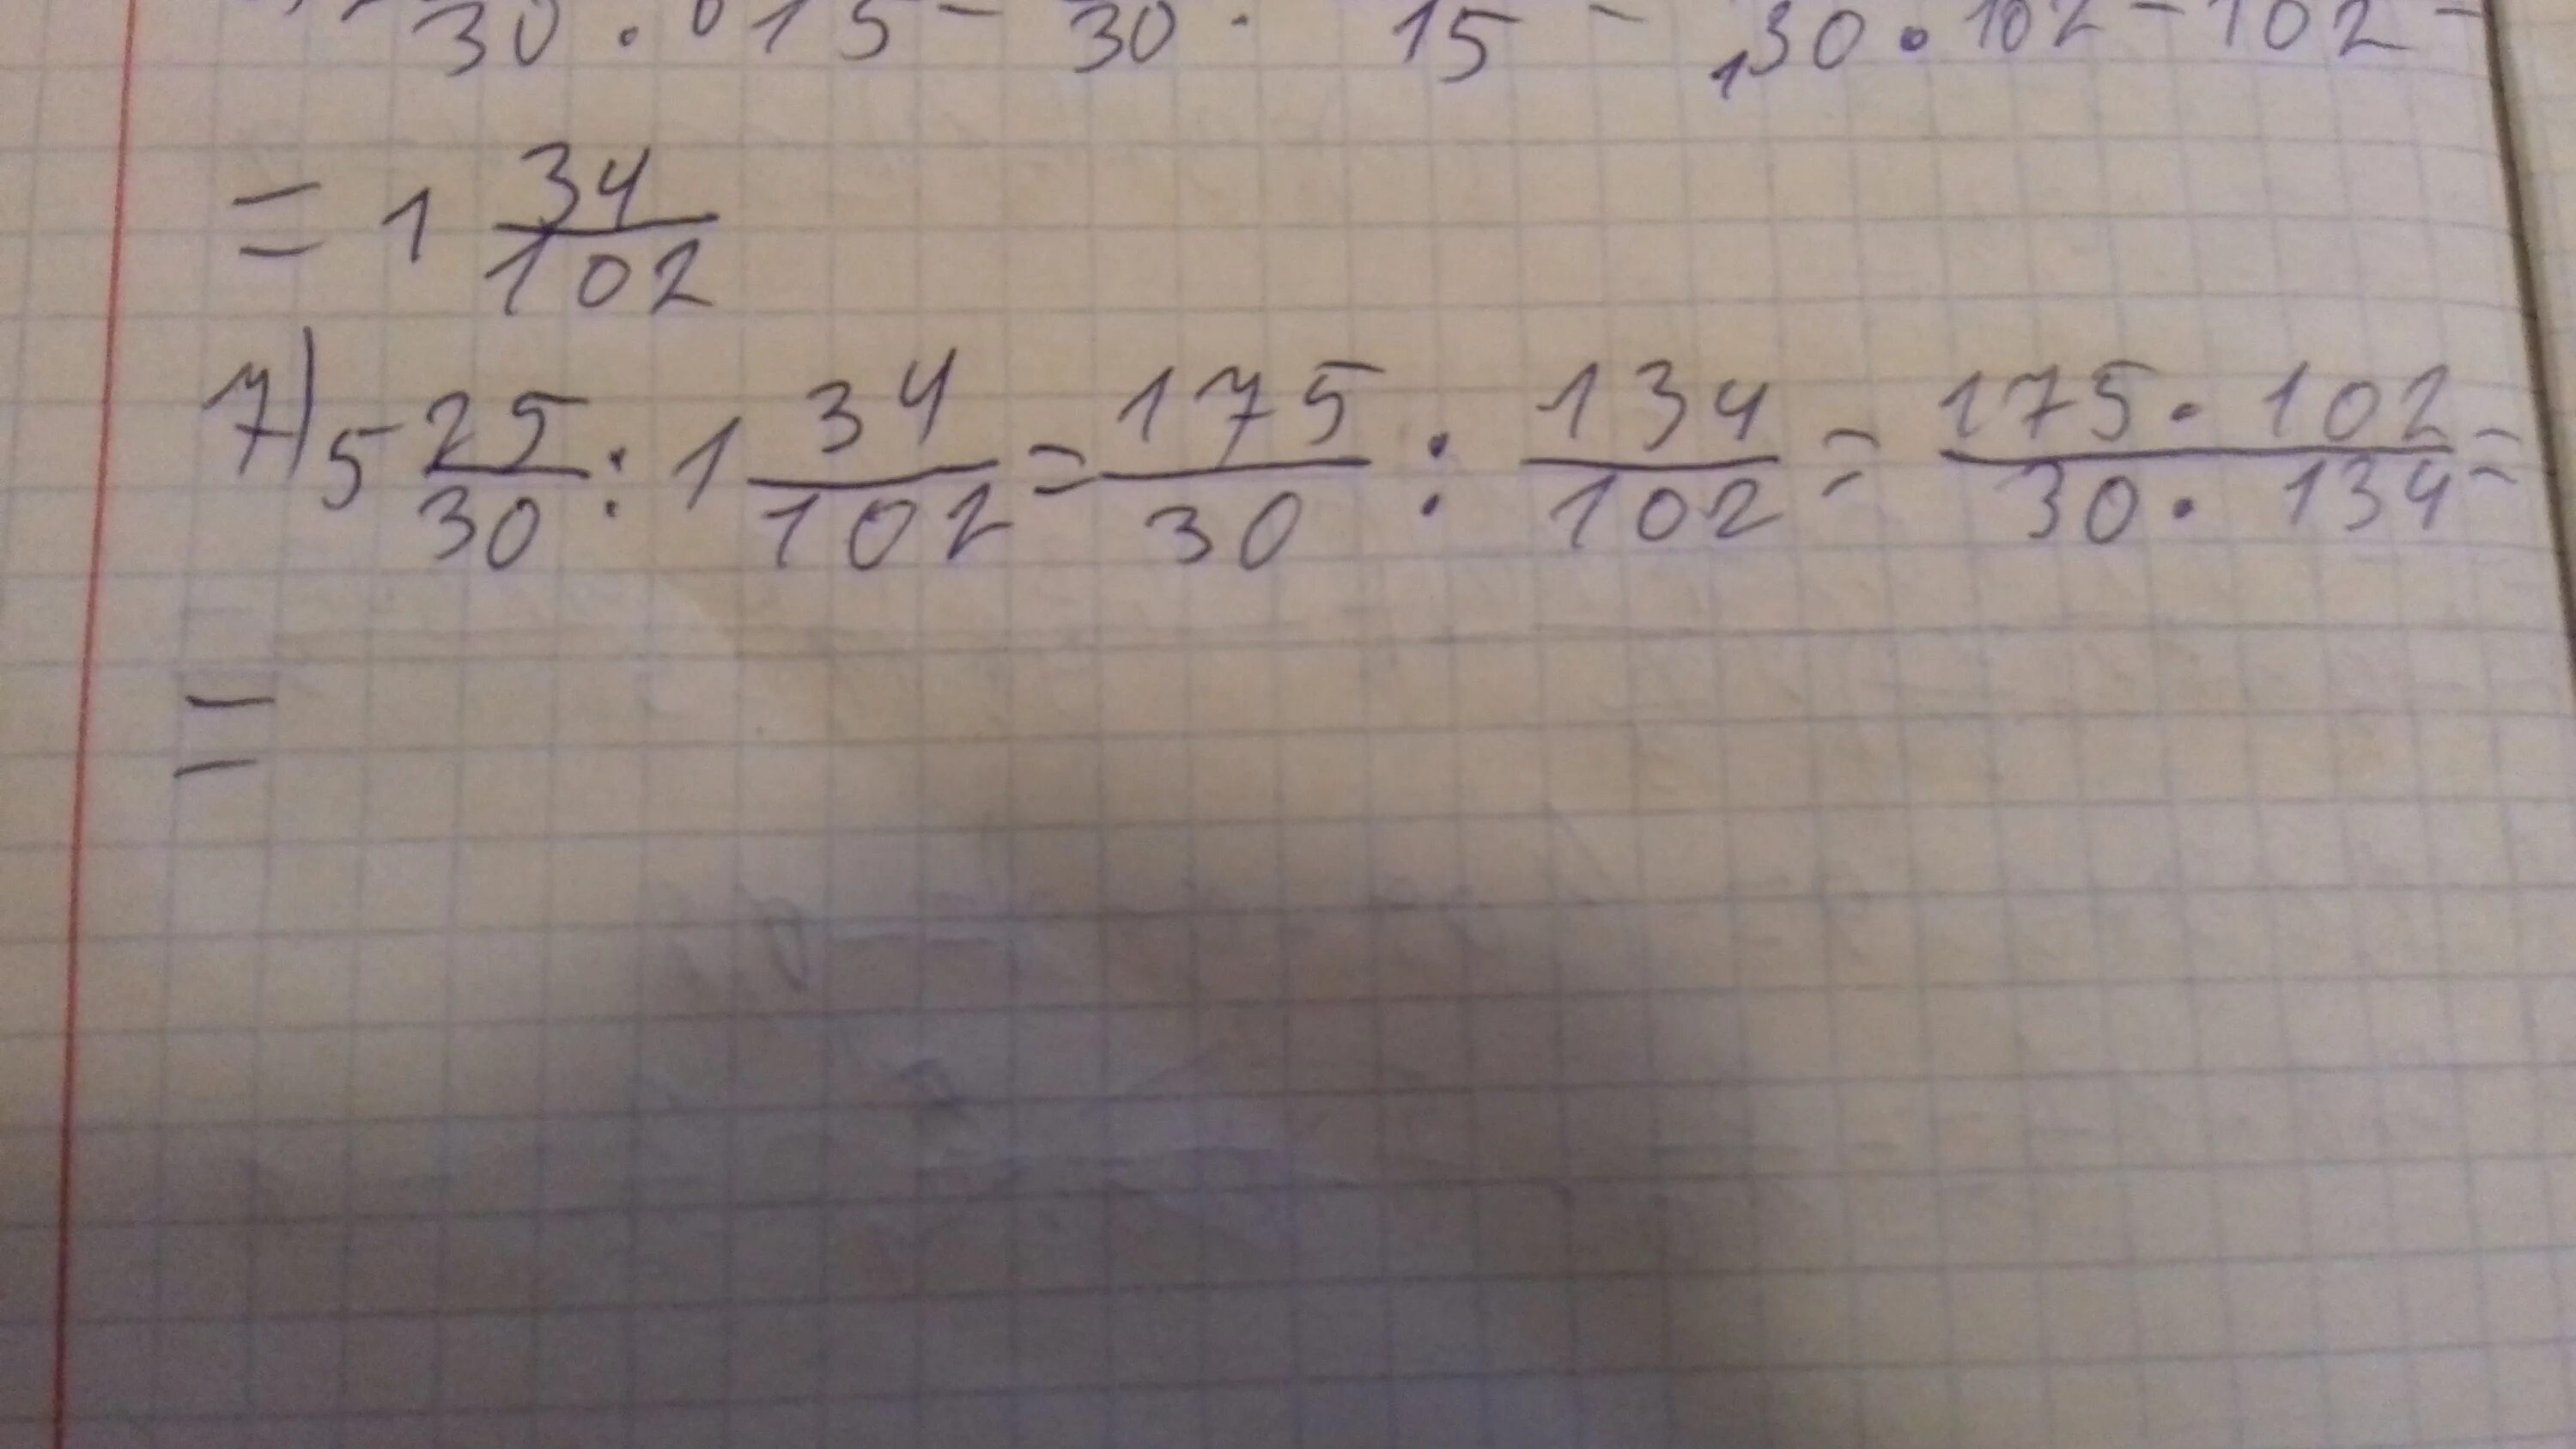 30 · 15 = 30 · 15 = 30 · 102 = 102 =
= 1 34/102
7) 5 25/30 : 1 34/102 = 175/30 : 134/102 = 175 · 102/30 · 134 =
=